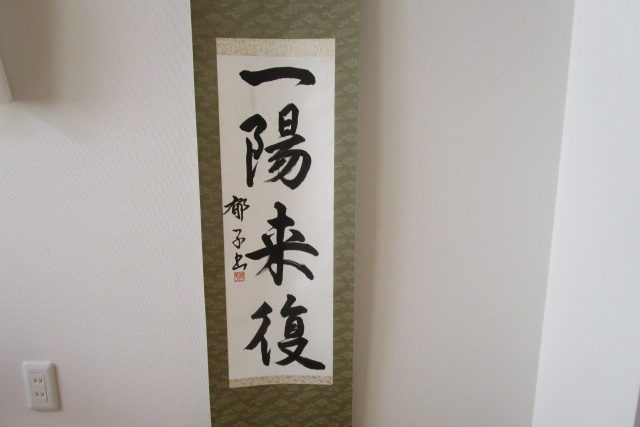 一陽来復
郁子書